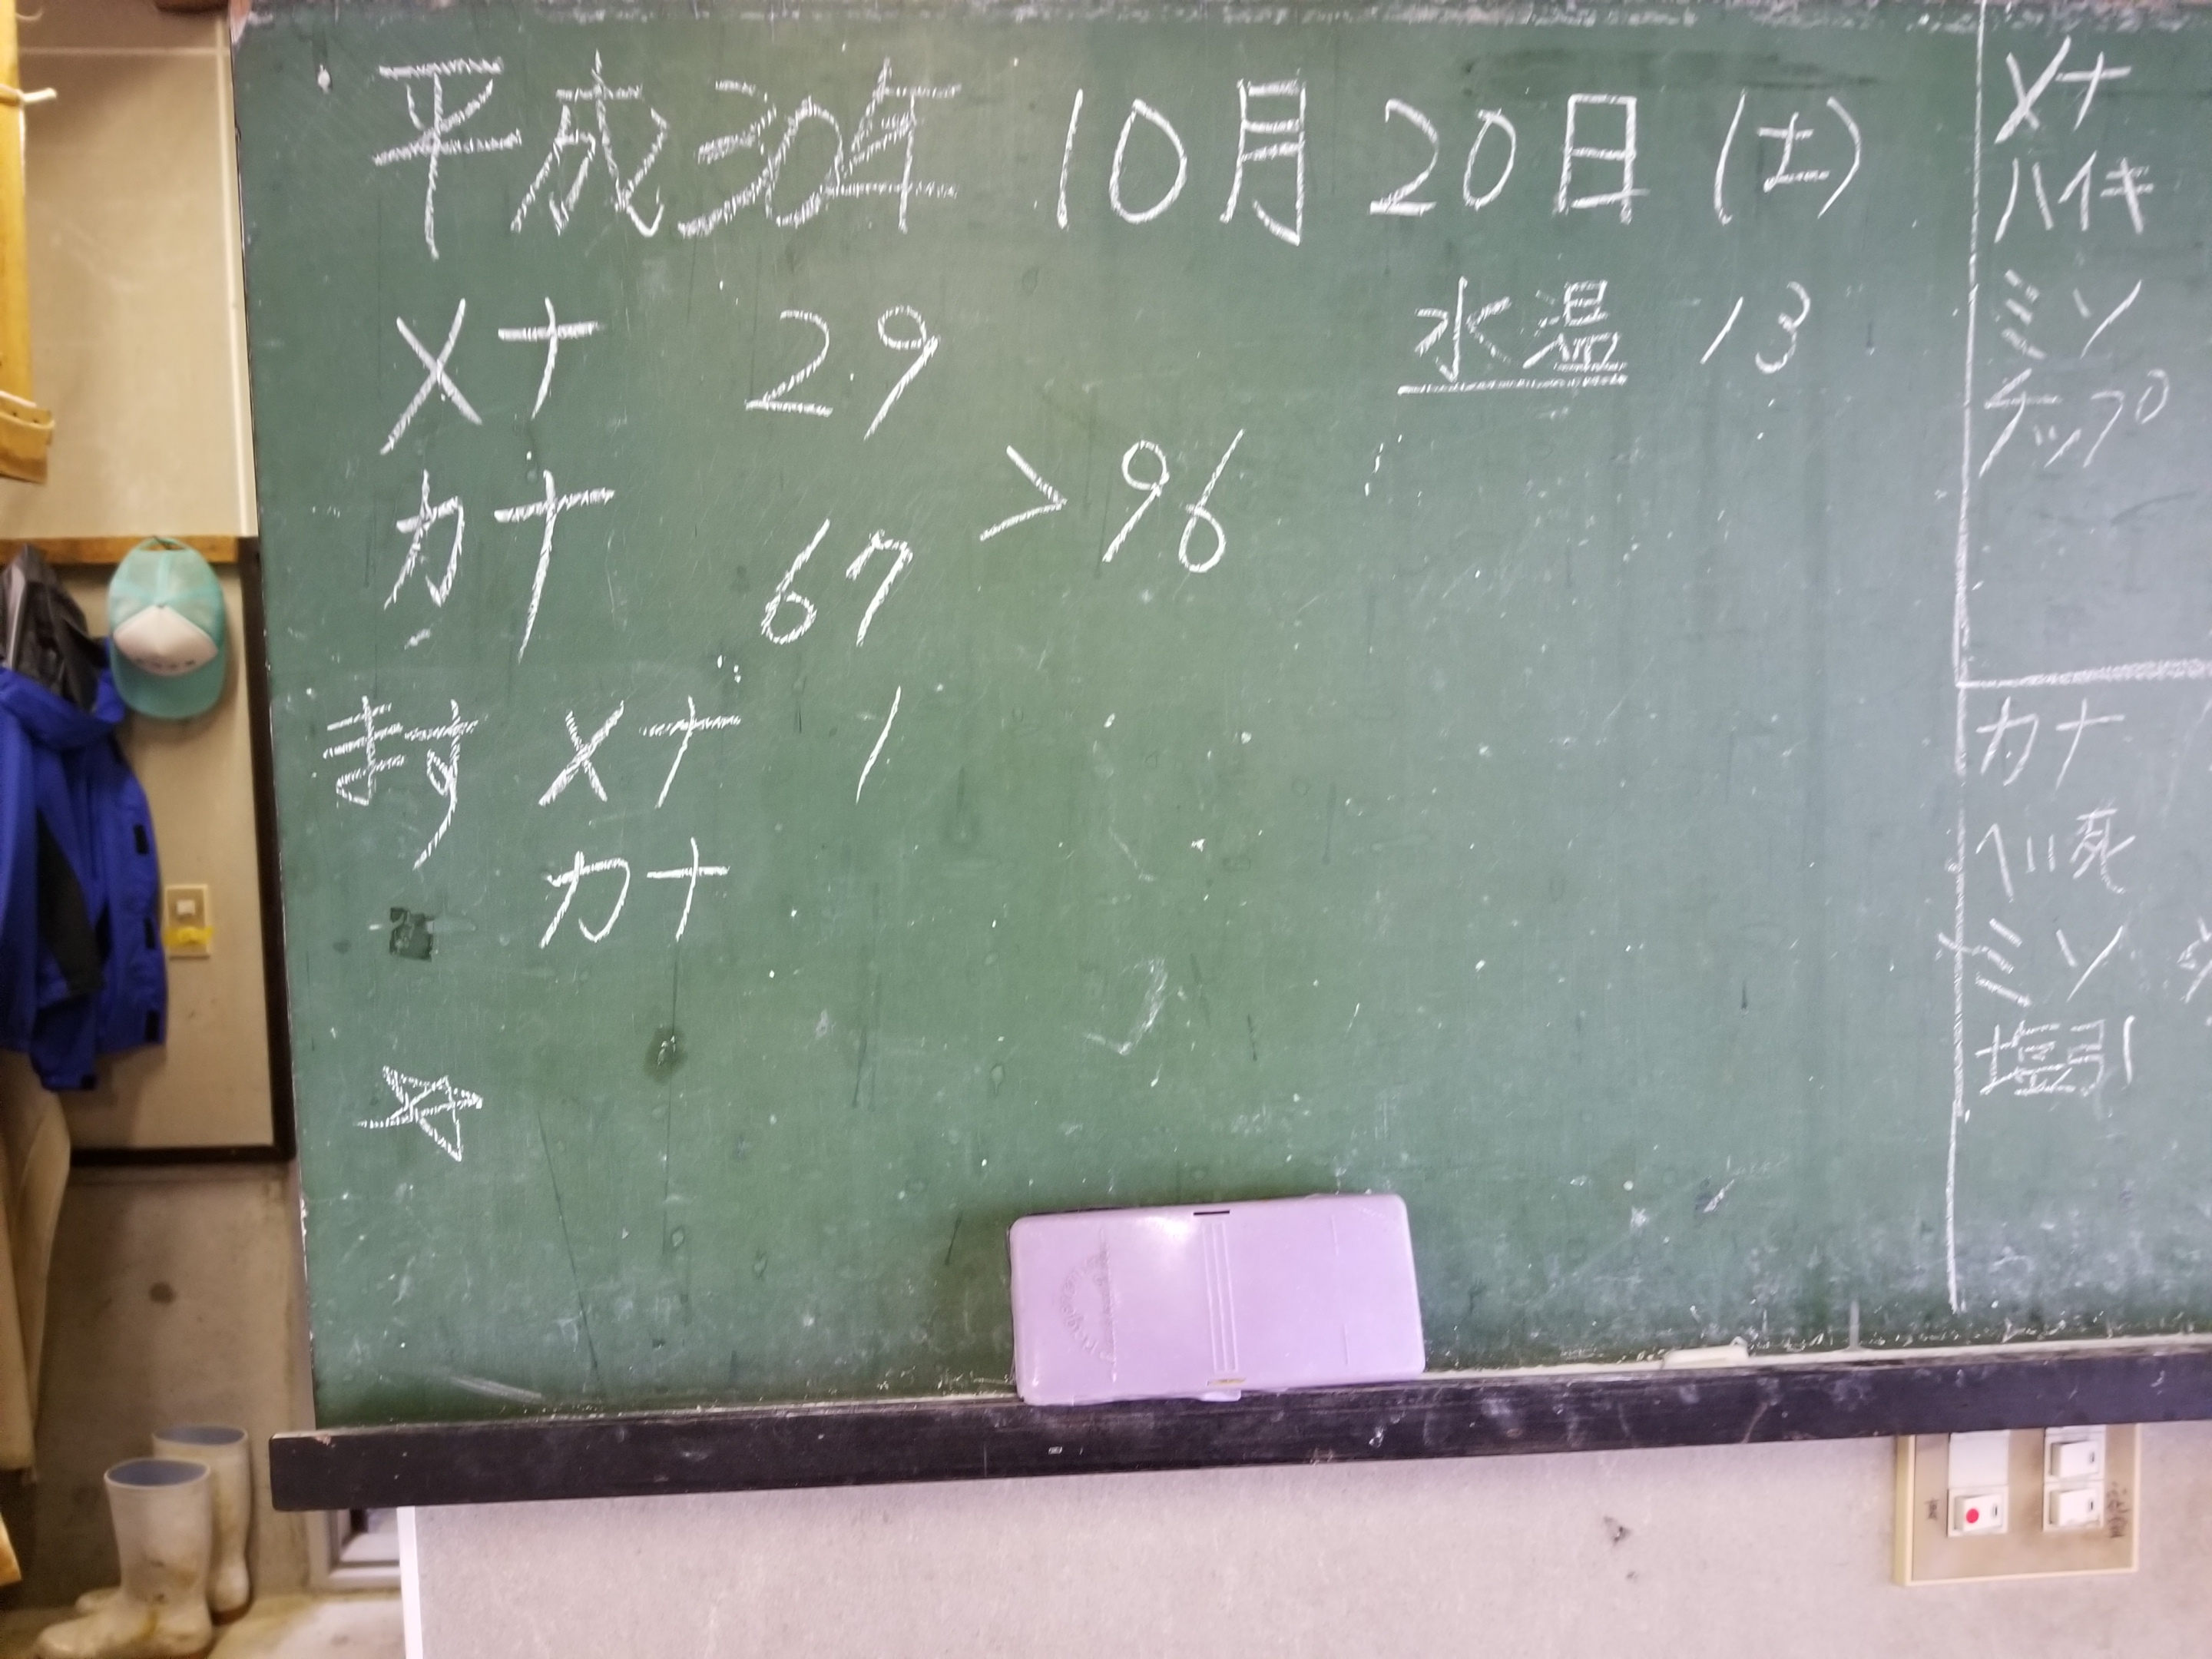 平成30年 10月 20日 (土)
メナ 29
水温 13
カナ 67
> 96
ます メナ 1
カナ
☆
メナ
ハイキ
ミソ
チップ
カナ
ヘい死
ミソ
塩引